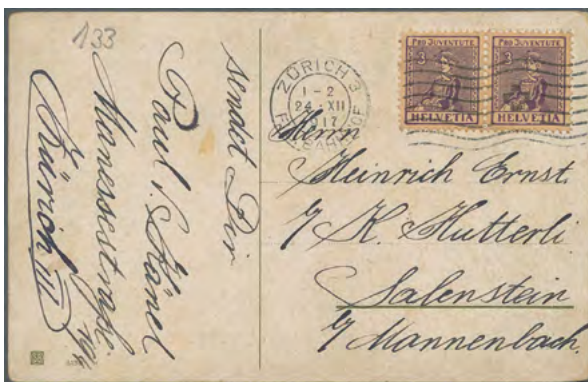 133
sendet Dir
Paul v. Känel
Manessestraße 194
Zürich III
ZÜRICH 3
1-2
24.XII
17
PRO JUVENTUTE
3
HELVETIA
PRO JUVENTUTE
3
HELVETIA
Herrn
Heinrich Ernst.
K. Hutterli
Salenstein
Mannenbach